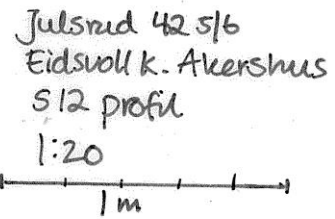 Julsrud 42 5/6
Eidsvoll k. Akershus
S12 profil
1:20
1 m